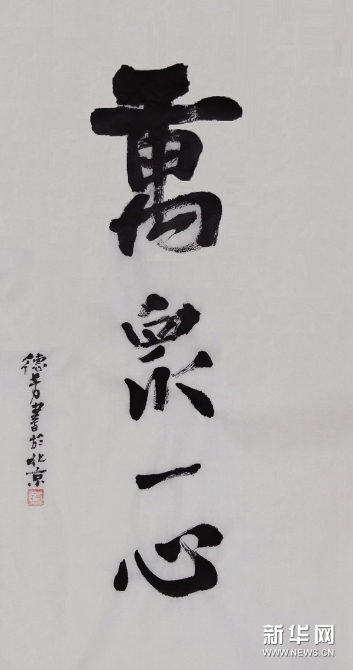 萬衆一心
德芳書於北京
新华网
WWW.NEWS.CN